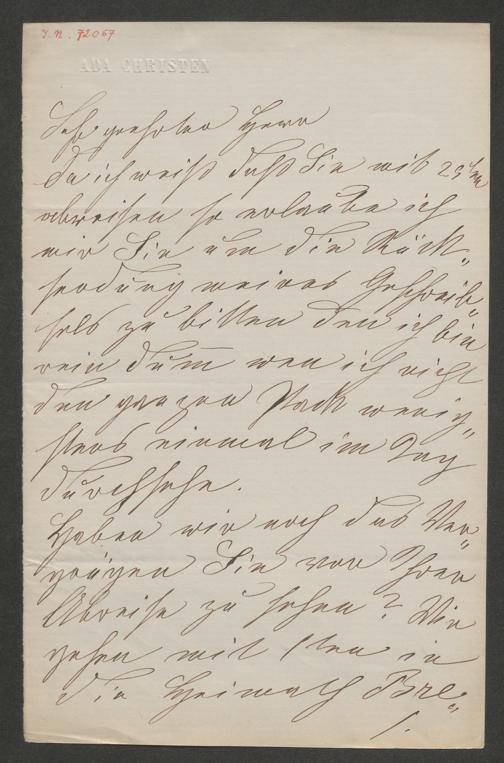 J.N. 72067
ADA CHRISTEN
Sehr geehrter Herr
Da ich weiß daß Sie mit 29ten
abreisen so erlaube ich
mir Sie um die Rück„
sendung meines Geschreib„
sels zu bitten den ich bin
rein dum̄ wen ich nicht
den ganzen Pack wenig„
stens einmal im Tag
durchsehe.
Haben wir noch das Ver„
gnügen Sie vor Ihrer
Abreise zu sehen? Wir
gehen mit 1ten in
die Heimath Bre„
/.